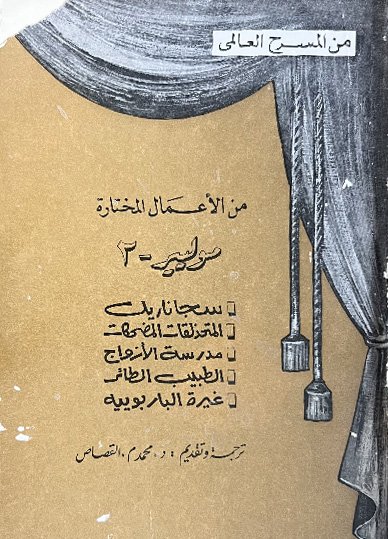 من المسرح العالمى
من الأعمال المختارة
موليير - ٢
سجاناريل
المتحذلقات المضحكات
مدرسة الأزواج
الطبيب الطائر
غيرة الباربوييه
ترجمة وتقديم : د. محمد م. القصاص